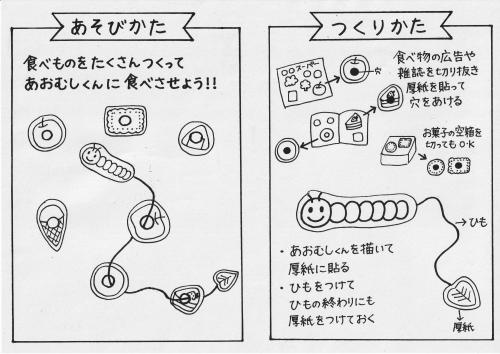 あそびかた
食べものをたくさんつくって
あおむしくんに食べさせよう!!
つくりかた
○○スーパー
穴
食べ物の広告や
雑誌を切り抜き
厚紙を貼って
穴をあける
お菓子の空箱を
切っても O・K
ひも
・あおむしくんを描いて
厚紙に貼る
・ひもをつけて
ひもの終わりにも
厚紙をつけておく
厚紙